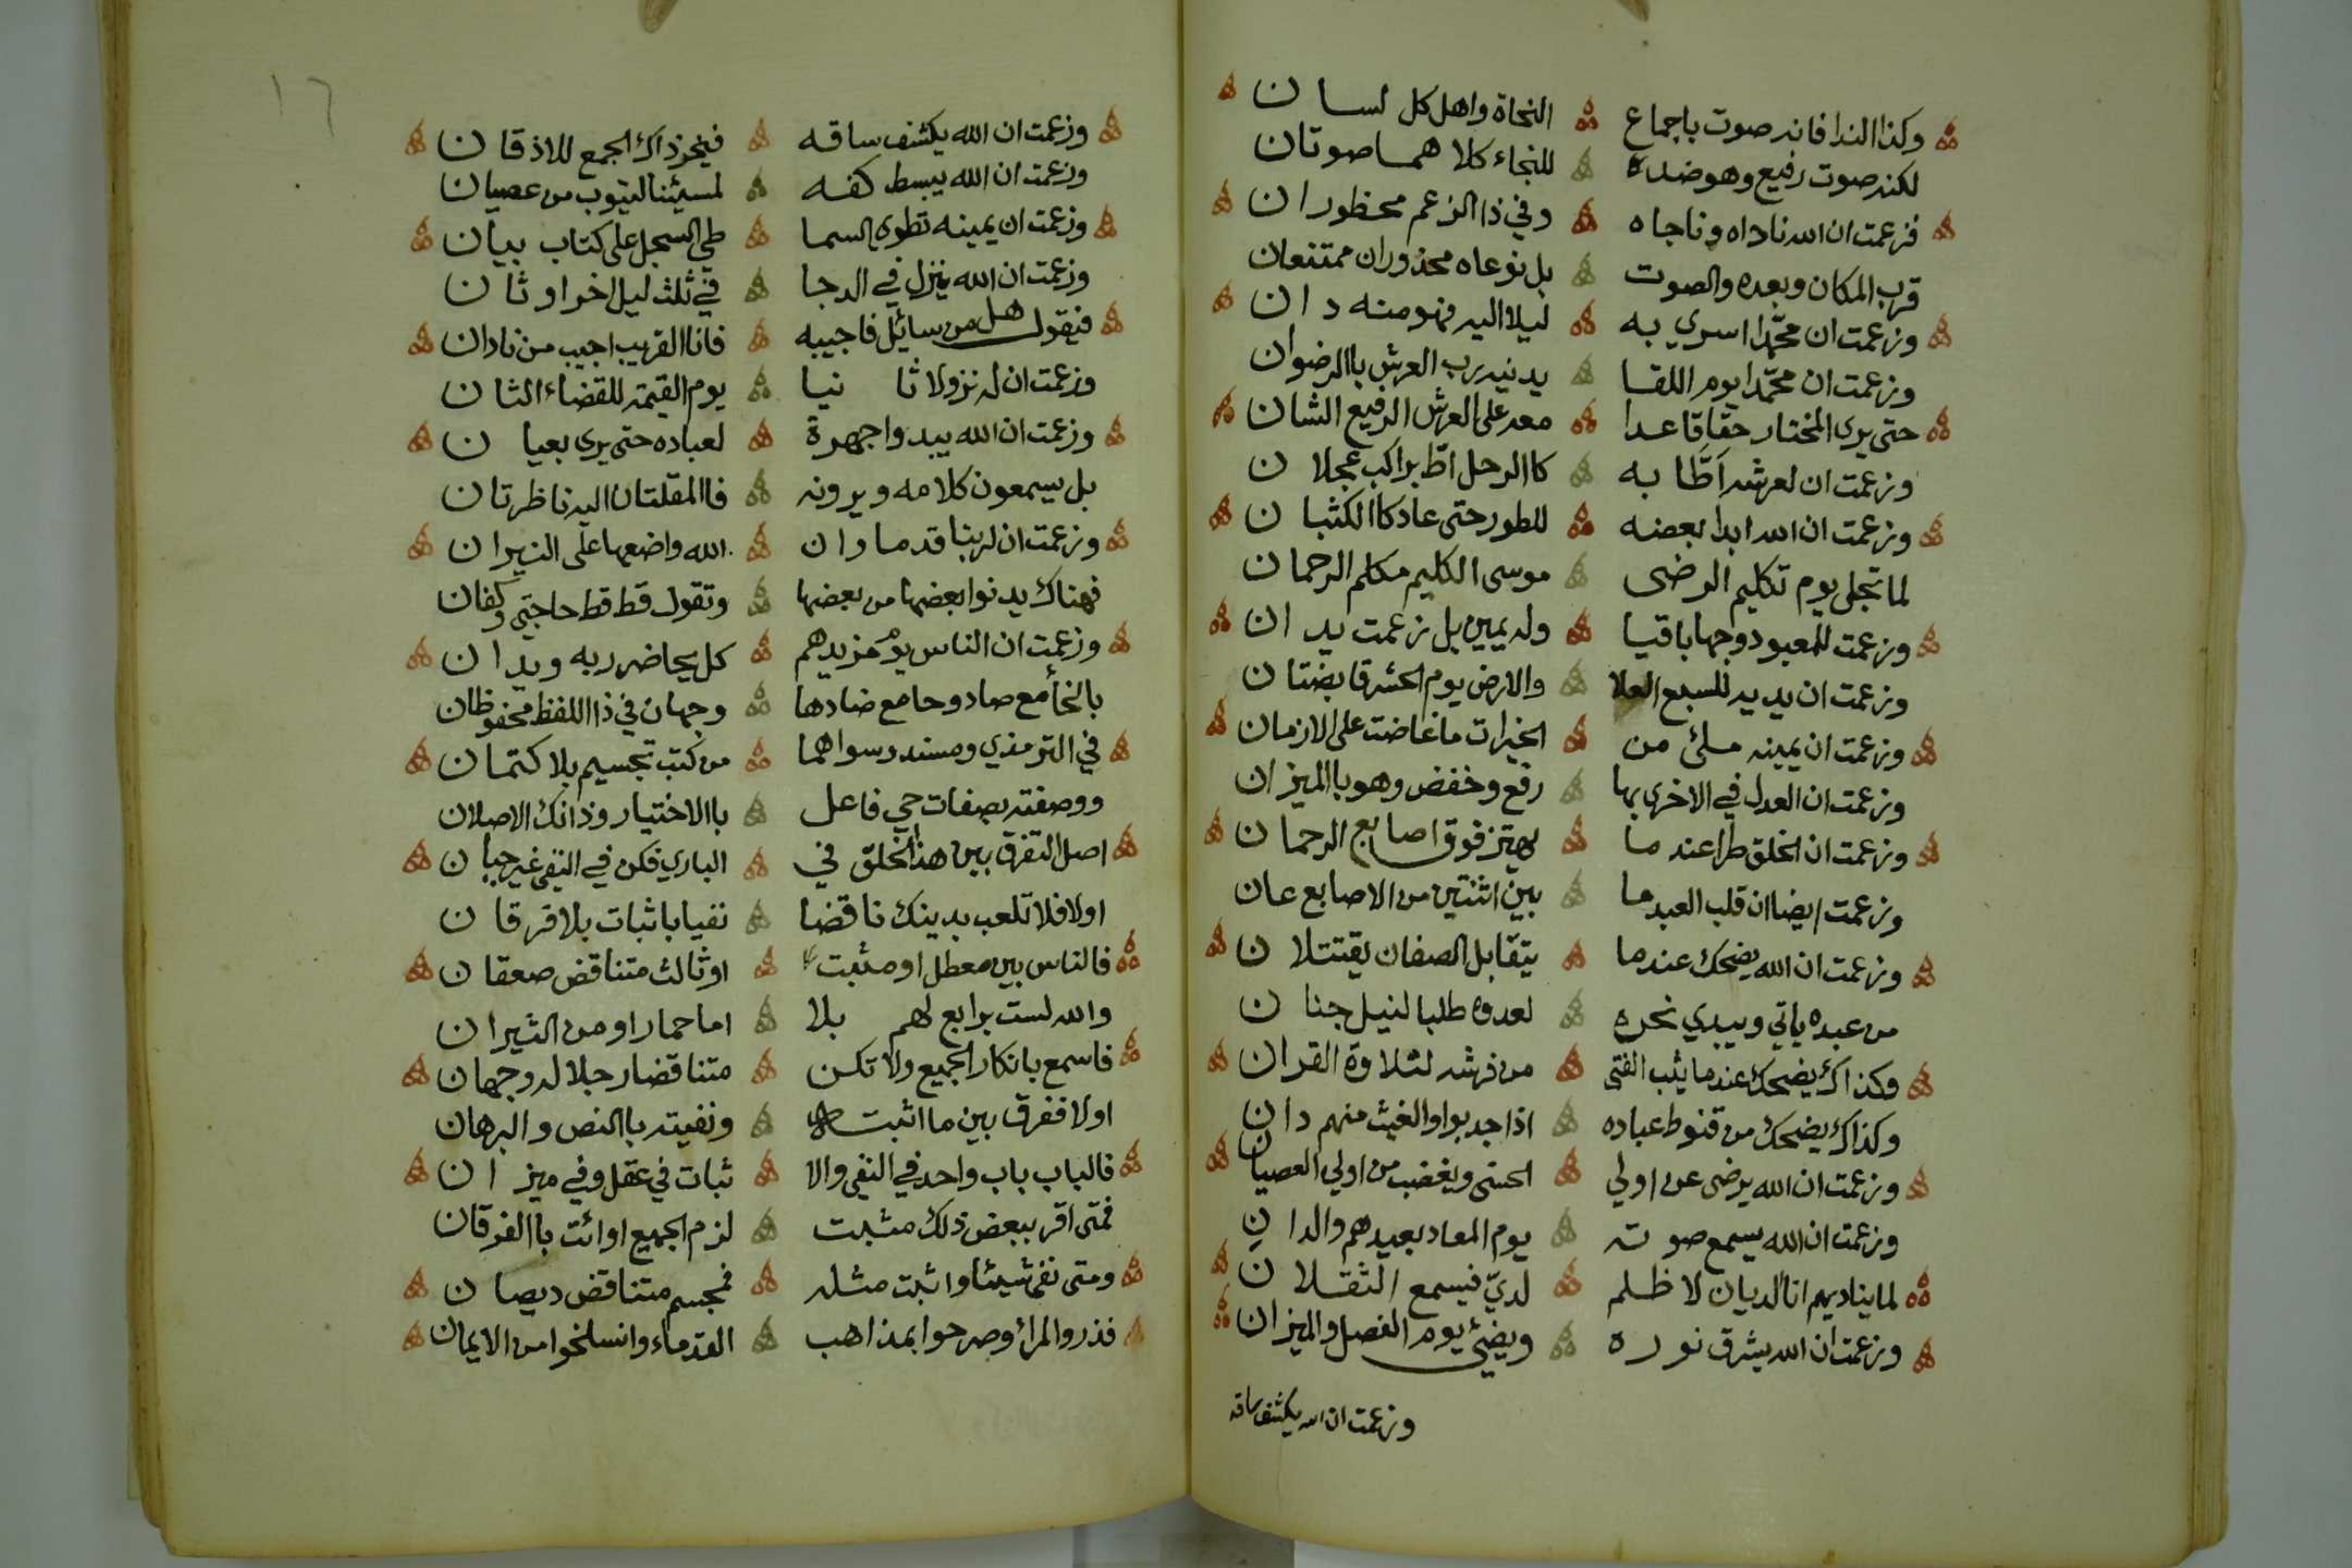 وكذا الندا فانه صوت باجماع النحاة واهل كل لسان
لكنه صوت رفيع وهو ضده للنجاء كلاهما صوتان
فزعمت ان الله ناداه وناجاه وفي ذا الزعم محظوران
قرب المكان وبعده والصوت بل نوعاه محذوران ممتنعان
وزعمت ان محمدا اسري به ليلا اليه فهو منه دان
وزعمت ان محمدا يوم اللقا يدنيه رب العرش باالرضوان
حتى يرى المختار حقا قاعدا معه على العرش الرفيع الشان
وزعمت ان لعرشه اَطّا به كاالرحل اطّ براكب عجلان
وزعمت ان الله ابدا بعضه للطور حتى عاد كاالكثبان
لما تجلى يوم تكليم الرضى موسى الكليم مكلم الرحمان
وزعمت للمعبود وجها باقيا وله يمين بل زعمت يدان
وزعمت ان يديه للسبع العلا والارض يوم الحشر قابضتان
وزعمت ان يمينه ملئ من الخيرات ما غاضت على الازمان
وزعمت ان العدل في الاخرى بها رفع وخفض وهو باالميزان
وزعمت ان الخلق طرا عندما يهتز فوق اصابع الرحمان
وزعمت ايضا ان قلب العبد ما بين اثنتين من الاصابع عان
وزعمت ان الله يضحك عندما يتقابل الصفان يقتتلان
من عبده ياتي ويبدي نحره لعدوه طلبا لنيل جنان
وكذاك يضحك عندما يثب الفتى من فرشه لتلاوة القران
وكذاك يضحك من قنوط عباده اذا جدبوا والغيث منهم دان
وزعمت ان الله يرضى عن اولي الحسنى ويغضب من اولي العصيان
وزعمت ان الله يسمع صوته يوم المعاد بعيدهم والدان
لما يناديهم انا الديان لا ظلم لديّ فيسمع الثقلان
وزعمت ان الله يشرق نوره ويضيئ يوم الفصل والميزان
وزعمت ان الله يكشف ساقه
١٦
وزعمت ان الله يكشف ساقه فيخر ذاك الجمع للاذقان
وزعمت ان الله يبسط كفه لمسيئنا ليتوب من عصيان
وزعمت ان يمينه تطوي السما طي السجل على كتاب بيان
وزعمت ان الله ينزل في الدجا في ثلث ليل اخر او ثان
فيقول هل من سائل فاجيبه فانا القريب اجيب من نادان
وزعمت ان له نزولا ثانيا يوم القيمة للقضاء الثان
وزعمت ان الله يبدوا جهرة لعباده حتى يرى بعيان
بل يسمعون كلامه ويرونه فاالمقلتان اليه ناظرتان
وزعمت ان لربنا قدما وان الله واضعها على النيران
فهناك يدنوا بعضها من بعضها وتقول قط قط حاجتي وكفان
وزعمت ان الناس يوم مزيدهم كل يحاضر ربه ويدان
بالخا مع صاد وحا مع ضادها وجهان في ذا اللفظ محفوظان
في الترمذي ومسند وسواهما من كتب تجسيم بلا كتمان
ووصفته بصفات حي فاعل باالاختيار وذانك الاصلان
اصل التفرق بين هذا الخلق في الباري فكن في النفي غير جبان
اولا فلا تلعب بدينك ناقضا نفيا باثبات بلا فرقان
فالناس بين معطل او مثبت او ثالث متناقض صعقان
والله لست برابع لهم بلا اما حمارا او من الثيران
فاسمع بانكار الجميع ولا تكن متناقضا رجلا له وجهان
اولا ففرق بين ما اثبته ونفيته باالنص والبرهان
فالباب باب واحد في النفي والا ثبات في عقل وفي ميزان
فمتى اقر ببعض ذلك مثبت لزم الجميع او ائت باالفرقان
ومتى نفى شيئا واثبت مثله فمجسم متناقض ديصان
فذروا المرأ وصرحوا بمذاهب القدماء وانسلخوا من الايمان